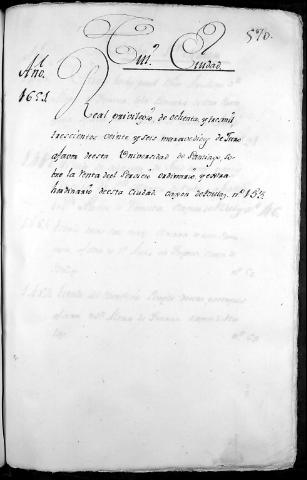 570.
Tuiº. Ciudad.
Año.
1651.
Real privilexio, de ochenta, y seis mil
trescientos veinte y seis maravedices de Juro
afavor de esta Universidad de Santiago, so-
bre la Renta del Servicio ordinario, y extra
hordinario, de esta Ciudad. caxon de nº. 15½